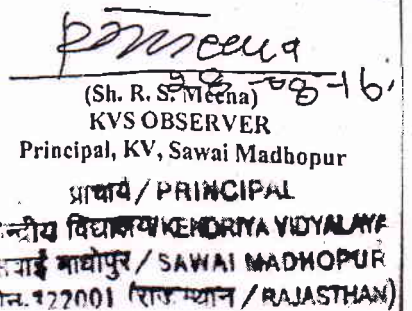 RSMeena
28-08-16
(Sh. R. S. Meena)
KVS OBSERVER
Principal, KV, Sawai Madhopur
प्राचार्य / PRINCIPAL
न्द्रीय विद्यालय/KENDRIYA VIDYALAYA
वाई माधोपुर / SAWAI MADHOPUR
322001 (राजस्थान / RAJASTHAN)